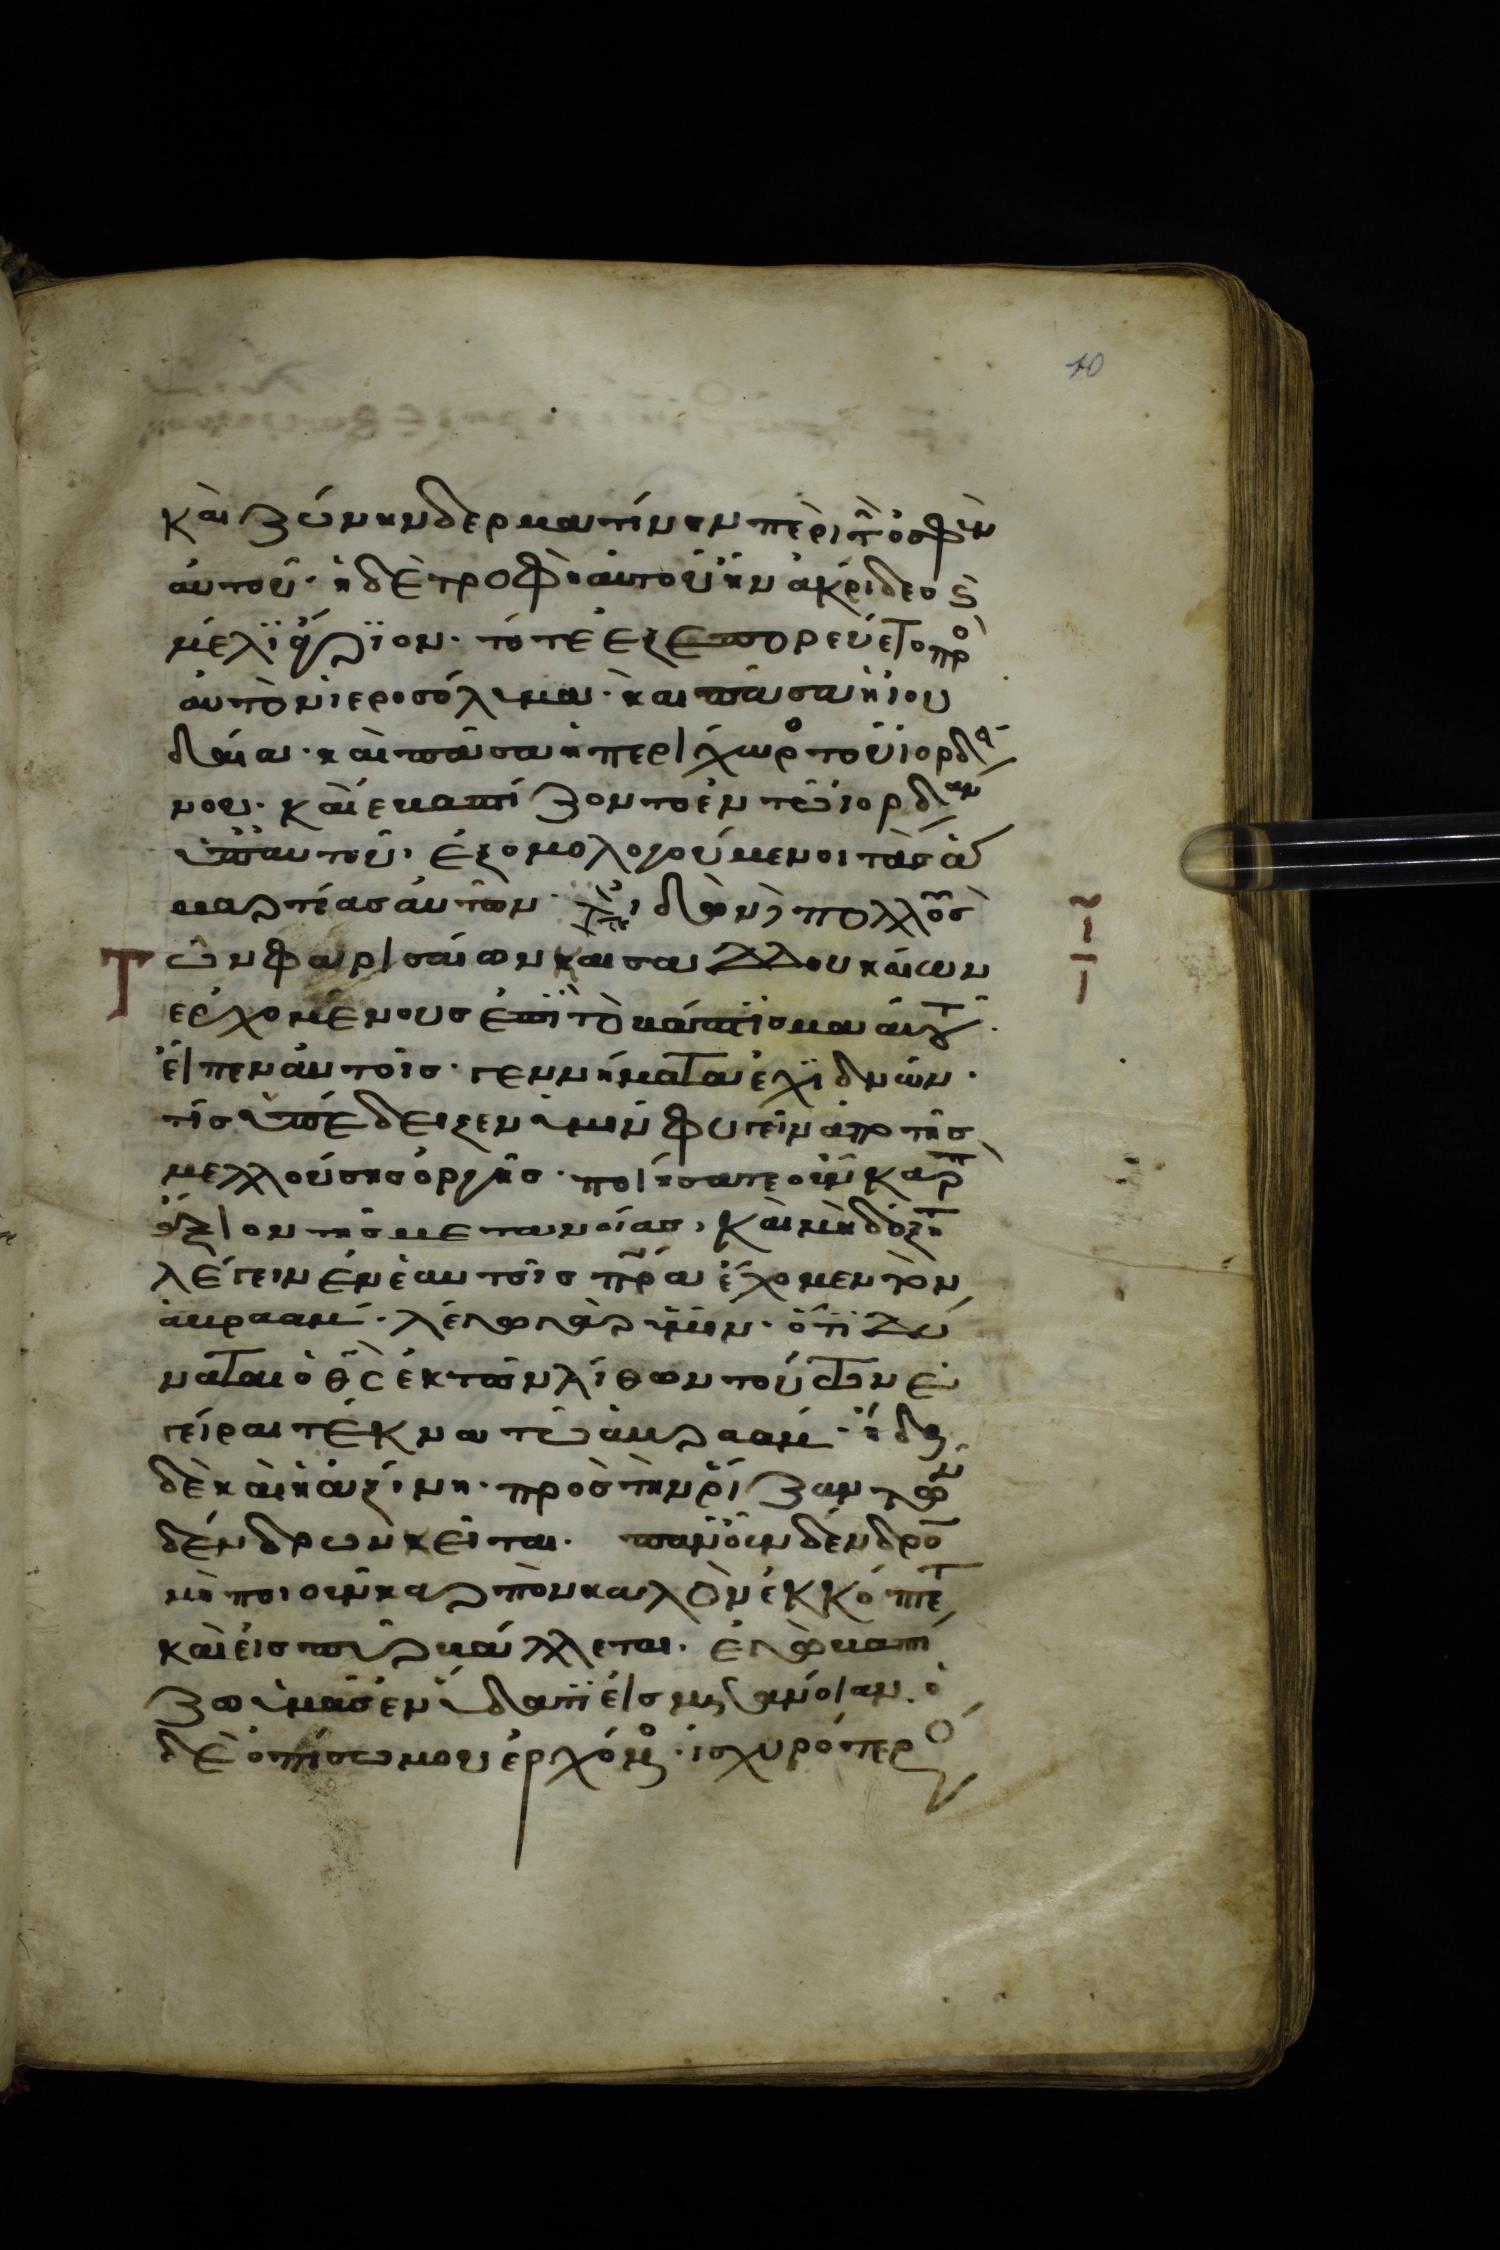 10
καὶ ζώνην δερματίνην περὶ τ̑ ὀσφὺν
αὐτοῦ· ἡ δὲ τροφὴ αὐτοῦ ἦν ἀκρίδες ϗ
μέλϊ ἄγρϊον· τότε ἐξεπορεύετο πρὸ
αὐτὸν ἱεροσόλυμα· καὶ πᾶσα ἡ ἰου
δαία· καὶ πᾶσα ἡ περίχωρο τοῦ ἰορδά
νου· καὶ ἐβαπτίζοντο ἐν τῶ ἰορδαν
ὑπ' αὐτοῦ· ἐξομολογούμενοι τὰσ ἁ
μαρτίας αὐτῶν· ἰδὼν πολλοὺσ
Τῶν φαρισαίων καὶ σαδδουκαίων
ἐρχομένους ἐπὶ τὸ βάπτισμα αὐτ·
εἶπεν αὐτοῖς· γεννήματα ἐχϊδνῶν·
τίς ὑπέδειξεν ὑμῖν φυγεῖν ἀπὸ τῆς
μελλούσης ὀργῆς· ποιήσατε οὖν καρπ
ἄξιον τῆς μετανοίας, καὶ μὴ δόξητ
λέγειν ἐν ἑαυτοῖς πρ̅α ἔχομεν τὸν
ἀβρααμ· λέγω γὰρ ὑμῖν· ὅτϊ δύ
ναται ὁ θ̅ς ἐκ τῶν λίθων τούτων ἐ
γεῖραι τέκνα τῶ ἀβρααμ· ἤδη
δὲ καὶ ἡ ἀξίνη· πρὸς τὴν ῥίζαν τῶν
δένδρων κεῖται· πᾶν οὖν δένδρο
μὴ ποιοῦν καρπὸν καλὸν ἐκκόπτετ
καὶ εἰς πῦρ βάλλεται· ἐγὼ βαπτί
ζω ὑμᾶς ἐν ὕδατϊ εἰς μετάνοιαν· ὁ
δὲ ὀπίσω μου ἐρχόμο· ἰσχυρότερό